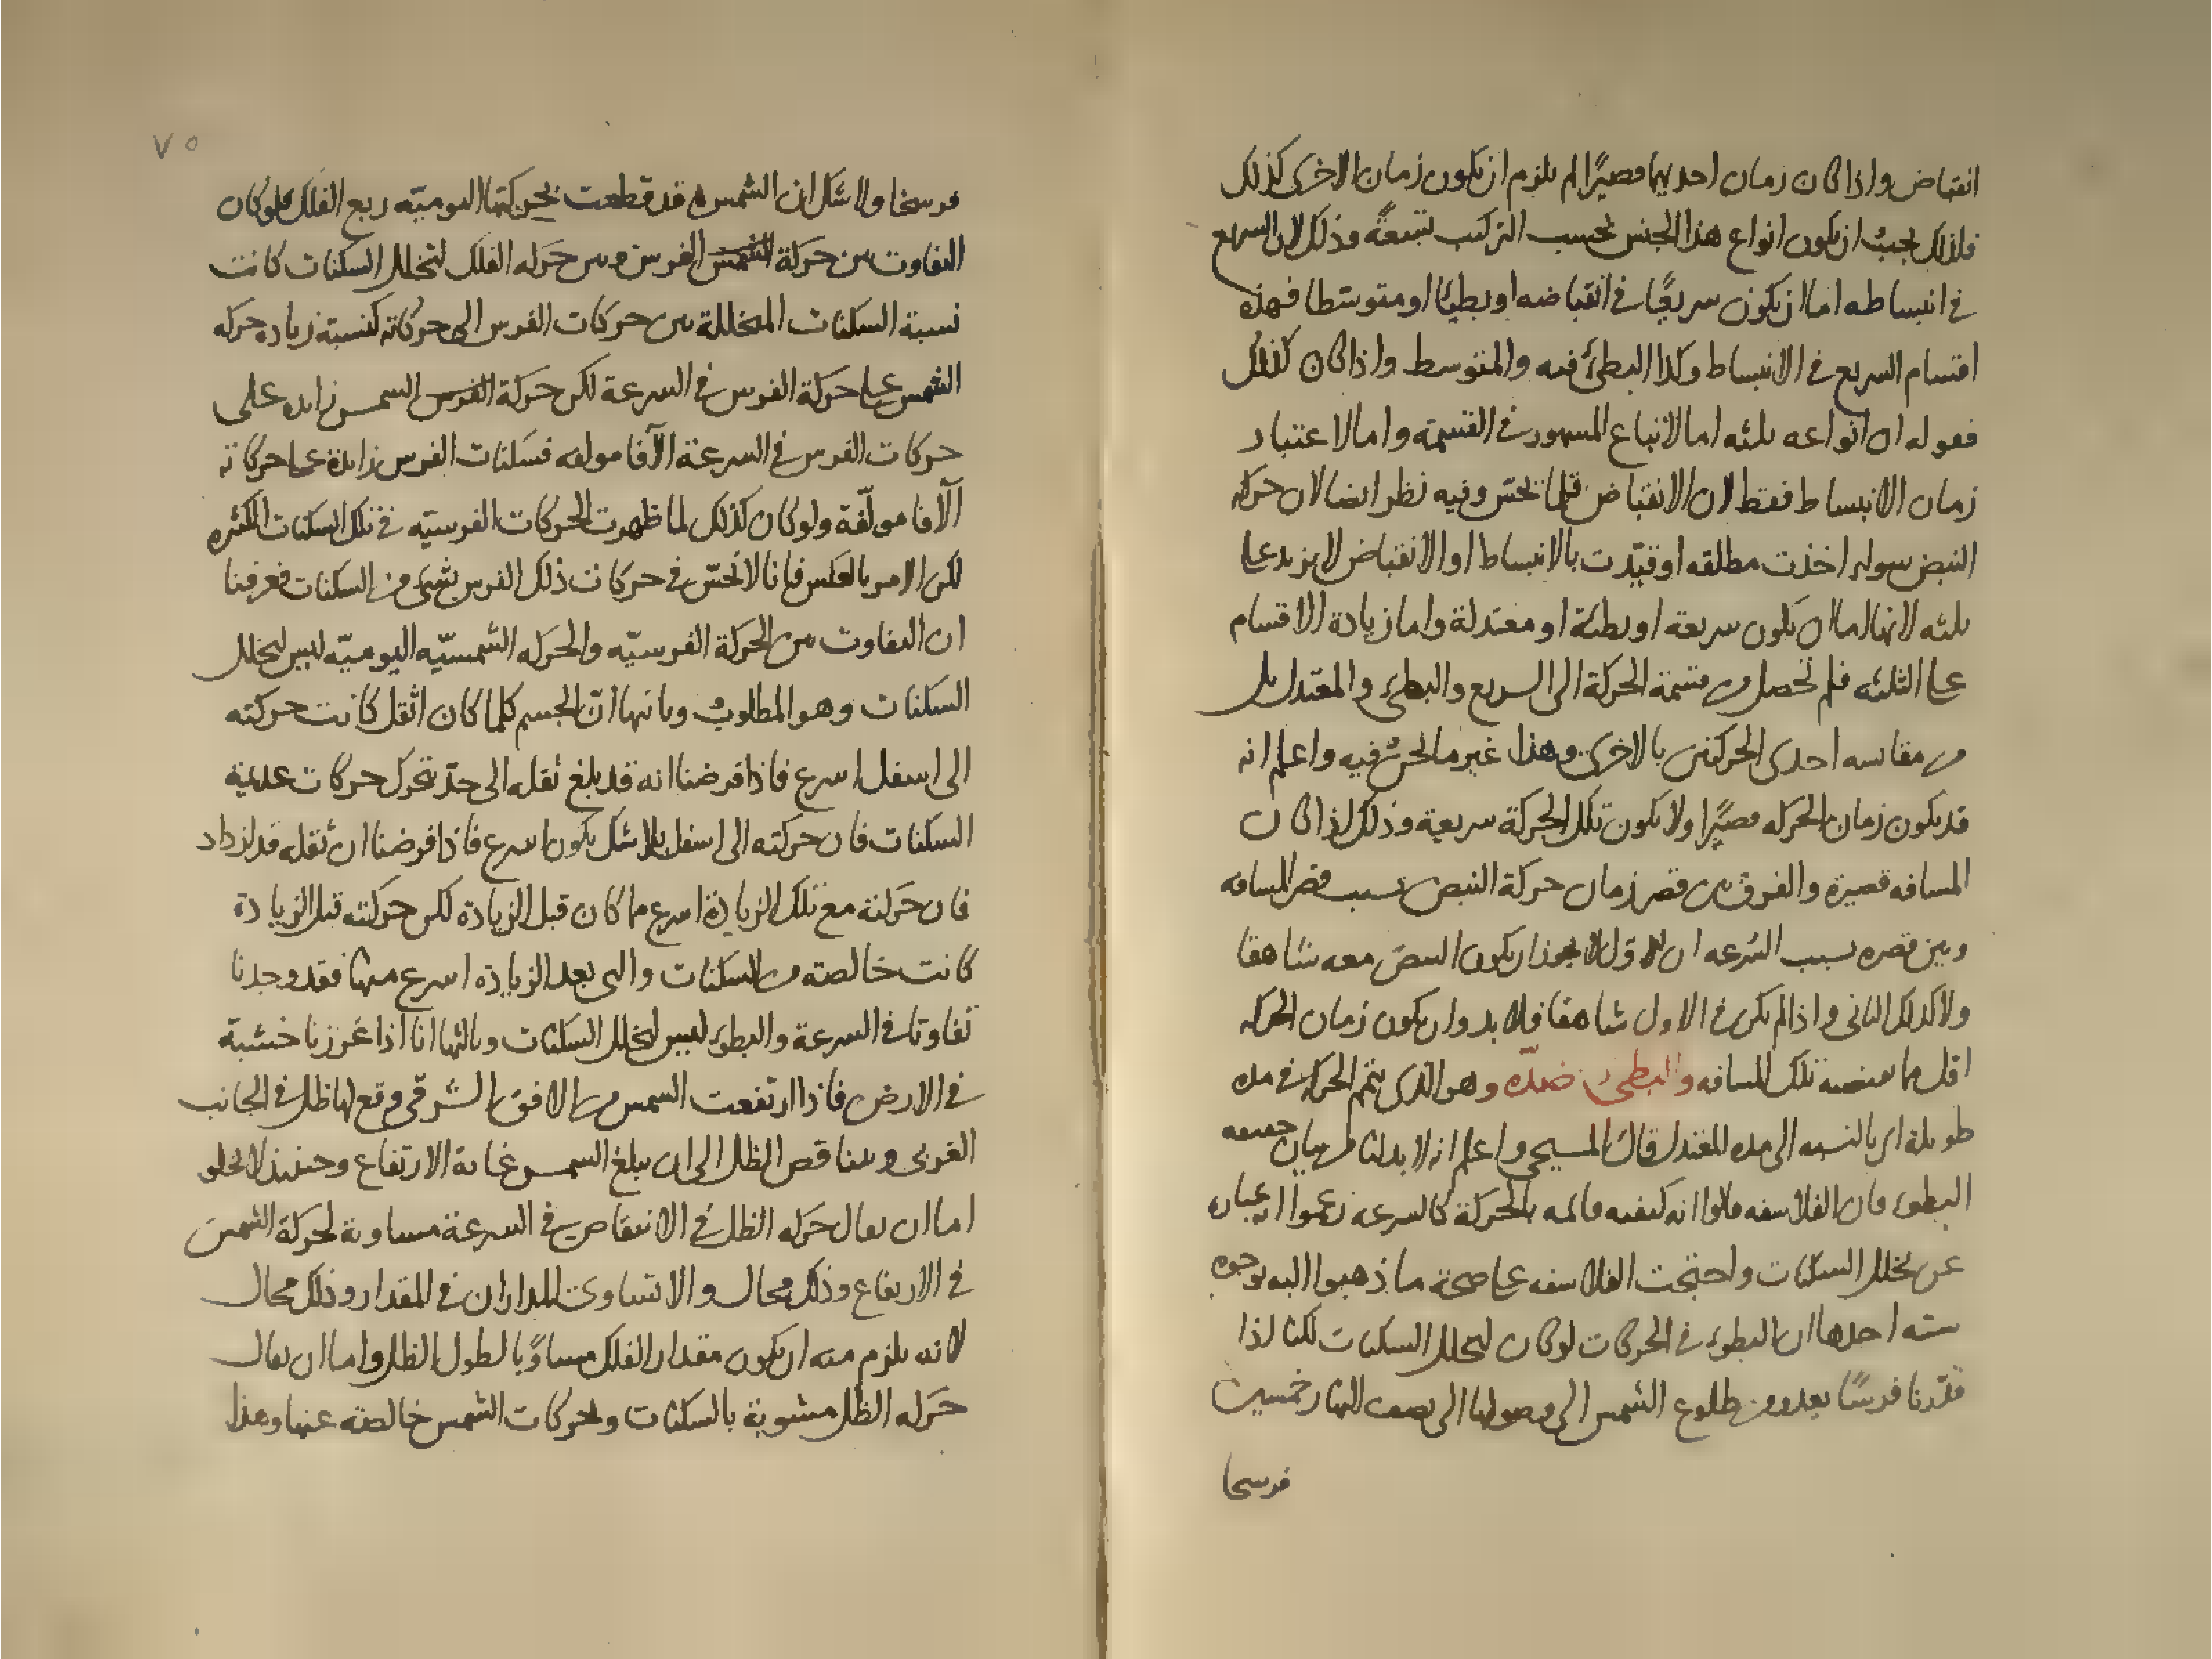 انقباض واذا كان زمان احديهما قصيرًا لم يلزم ان يكون زمان الاخرى كذلك
فلذلك يجب ان يكون انواع هذا الجنس بحسب التركيب تسعةً وذلك لان السريع
في انبساطه اما ان يكون سريعًا في انقباضه او بطيئا او متوسطا فهذه
اقسام السريع في الانبساط وكذا البطئ فيه والمتوسط واذا كان كذلك
فقوله ان انواعه ثلثه اما لاتباع المشهور في القسمة واما لاعتبار
زمان الانبساط فقط لان الانقباض قلما يحس وفيه نظر ايضا لان حركة
النبض سواء اخذت مطلقه او قيّدت بالانبساط او الانقباض لا يزيد على
ثلثه لانها اما ان يكون سريعة او بطئة او معتدلة واما زيادة الاقسام
على الثلثه فلم تحصل من قسمة الحركة الى السريع والبطئ والمعتدل بل
من مقايسه احدى الحركتين بالاخرى وهذا غير ما نحن فيه واعلم انه
قد يكون زمان الحركه قصيرًا ولا يكون تلك الحركة سريعية وذلك اذا كان
المسافه قصيرة والفرق بين قصر زمان حركة النبض بسبب قصر المسافه
وبين قصره بسبب السُرعه ان الاوّل لا يجوز ان يكون النبض معه شاهقا
ولا كذلك الثاني واذا لم يكن في الاول شاهقا فلا بد وان يكون زمان الحركه
اقل ما تقتضيه تلك المسافه والبطئ ضدّه وهو الذى يتم الحركة في مده
طويلة اى بالنسبه الى مده المعتدل قال المسيحي واعلم انه لا بد لنا من بيان حقيقه
البطوء فان الفلاسفه قالوا انه كيفيه قائمه بالحركة كالسرعه زعموا انه عباره
عن تخلل السكنات واحتجت الفلاسفه على صحة ما ذهبوا اليه بوجوه
سته احدها ان البطوء في الحركات لو كان لتخلل السكنات لكنا اذا
قدّرنا فرسًا يعدو من طلوع الشمس الى وصولها الى نصف النهار خمسين
فرسخا
٧٥
فرسخا ولا شك ان الشمس قد قطعت بحركتها اليوميّه ربع الفلك فلو كان
التفاوت بين حركة الشمس الفرس وبين حركه الفلك لتخلل السكنات كانت
نسبة السكنات المتخللة بين حركات الفرس الى حركاته كنسبة زياده حركه
الشمس على حركة الفرس في السرعة لكن حركة الفرس الشمس زايده على
حركات الفرس في السرعة الآفا مولفه فسكنات الفرس زايدة على حركاته
آلافا مولّفة ولو كان كذلك لما ظهرت الحركات الفرسيّه في تلك السكنات الكثيره
لكن الامر بالعكس فإنا لا نحسّ في حركات ذلك الفرس بشئ من السكنات فعرفنا
ان التفاوت بين الحركة الفرسيّه والحركه الشمسيّه اليوميّه ليس لتخلل
السكنات وهو المطلوب وثانيها انّ الجسم كلما كان اثقل كانت حركته
الى اسفل اسرع فاذا فرضنا انه قد بلغ ثقله الى حدّ تحرك حركات عديمة
السكنات فان حركته الى اسفل بلا شك يكون اسرع فاذا فرضنا ان ثقله قد ازداد
فان حركته مع تلك الزيادة اسرع مما كان قبل الزيادة لكن حركته قبل الزيادة
كانت خالصته من السكنات والتى بعد الزيادة اسرع منها فقد وجدنا
تفاوتا في السرعة والبطوء ليس لتخلل السكنات وثالثها انا اذا غرزنا خشبة
في الارض فاذا ارتفعت الشمس من الافق الشرقي وقع لها ظل في الجانب
الغربى ويتناقص الظل الى ان يبلغ الشمس غاية الارتفاع وحينئذ لا يخلو
اما ان يقال حركه الظل في الانتقاص في السرعة مساوية لحركة الشمس
في الارتفاع وذلك محال والا تساوى المداران في المقدار وذلك محال
لانه يلزم منه ان يكون مقدار الفلك مساوًيا لطول الظل واما ان يقال
حركه الظل مشوبة بالسكنات وحركات الشمس خالصته عنها وهذا